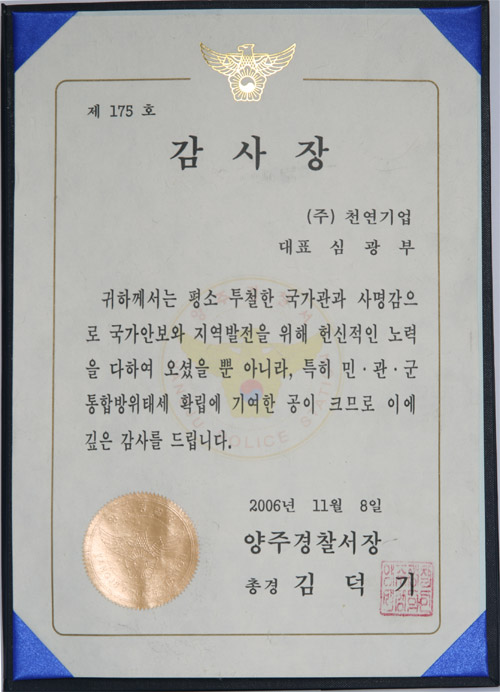 제 175 호
감 사 장
(주) 천연기업
대표 심 광 부
귀하께서는 평소 투철한 국가관과 사명감으
로 국가안보와 지역발전을 위해 헌신적인 노력
을 다하여 오셨을 뿐 아니라, 특히 민·관·군
통합방위태세 확립에 기여한 공이 크므로 이에
깊은 감사를 드립니다.
POLICE
2006년 11월 8일
양주경찰서장
총경 김 덕 기